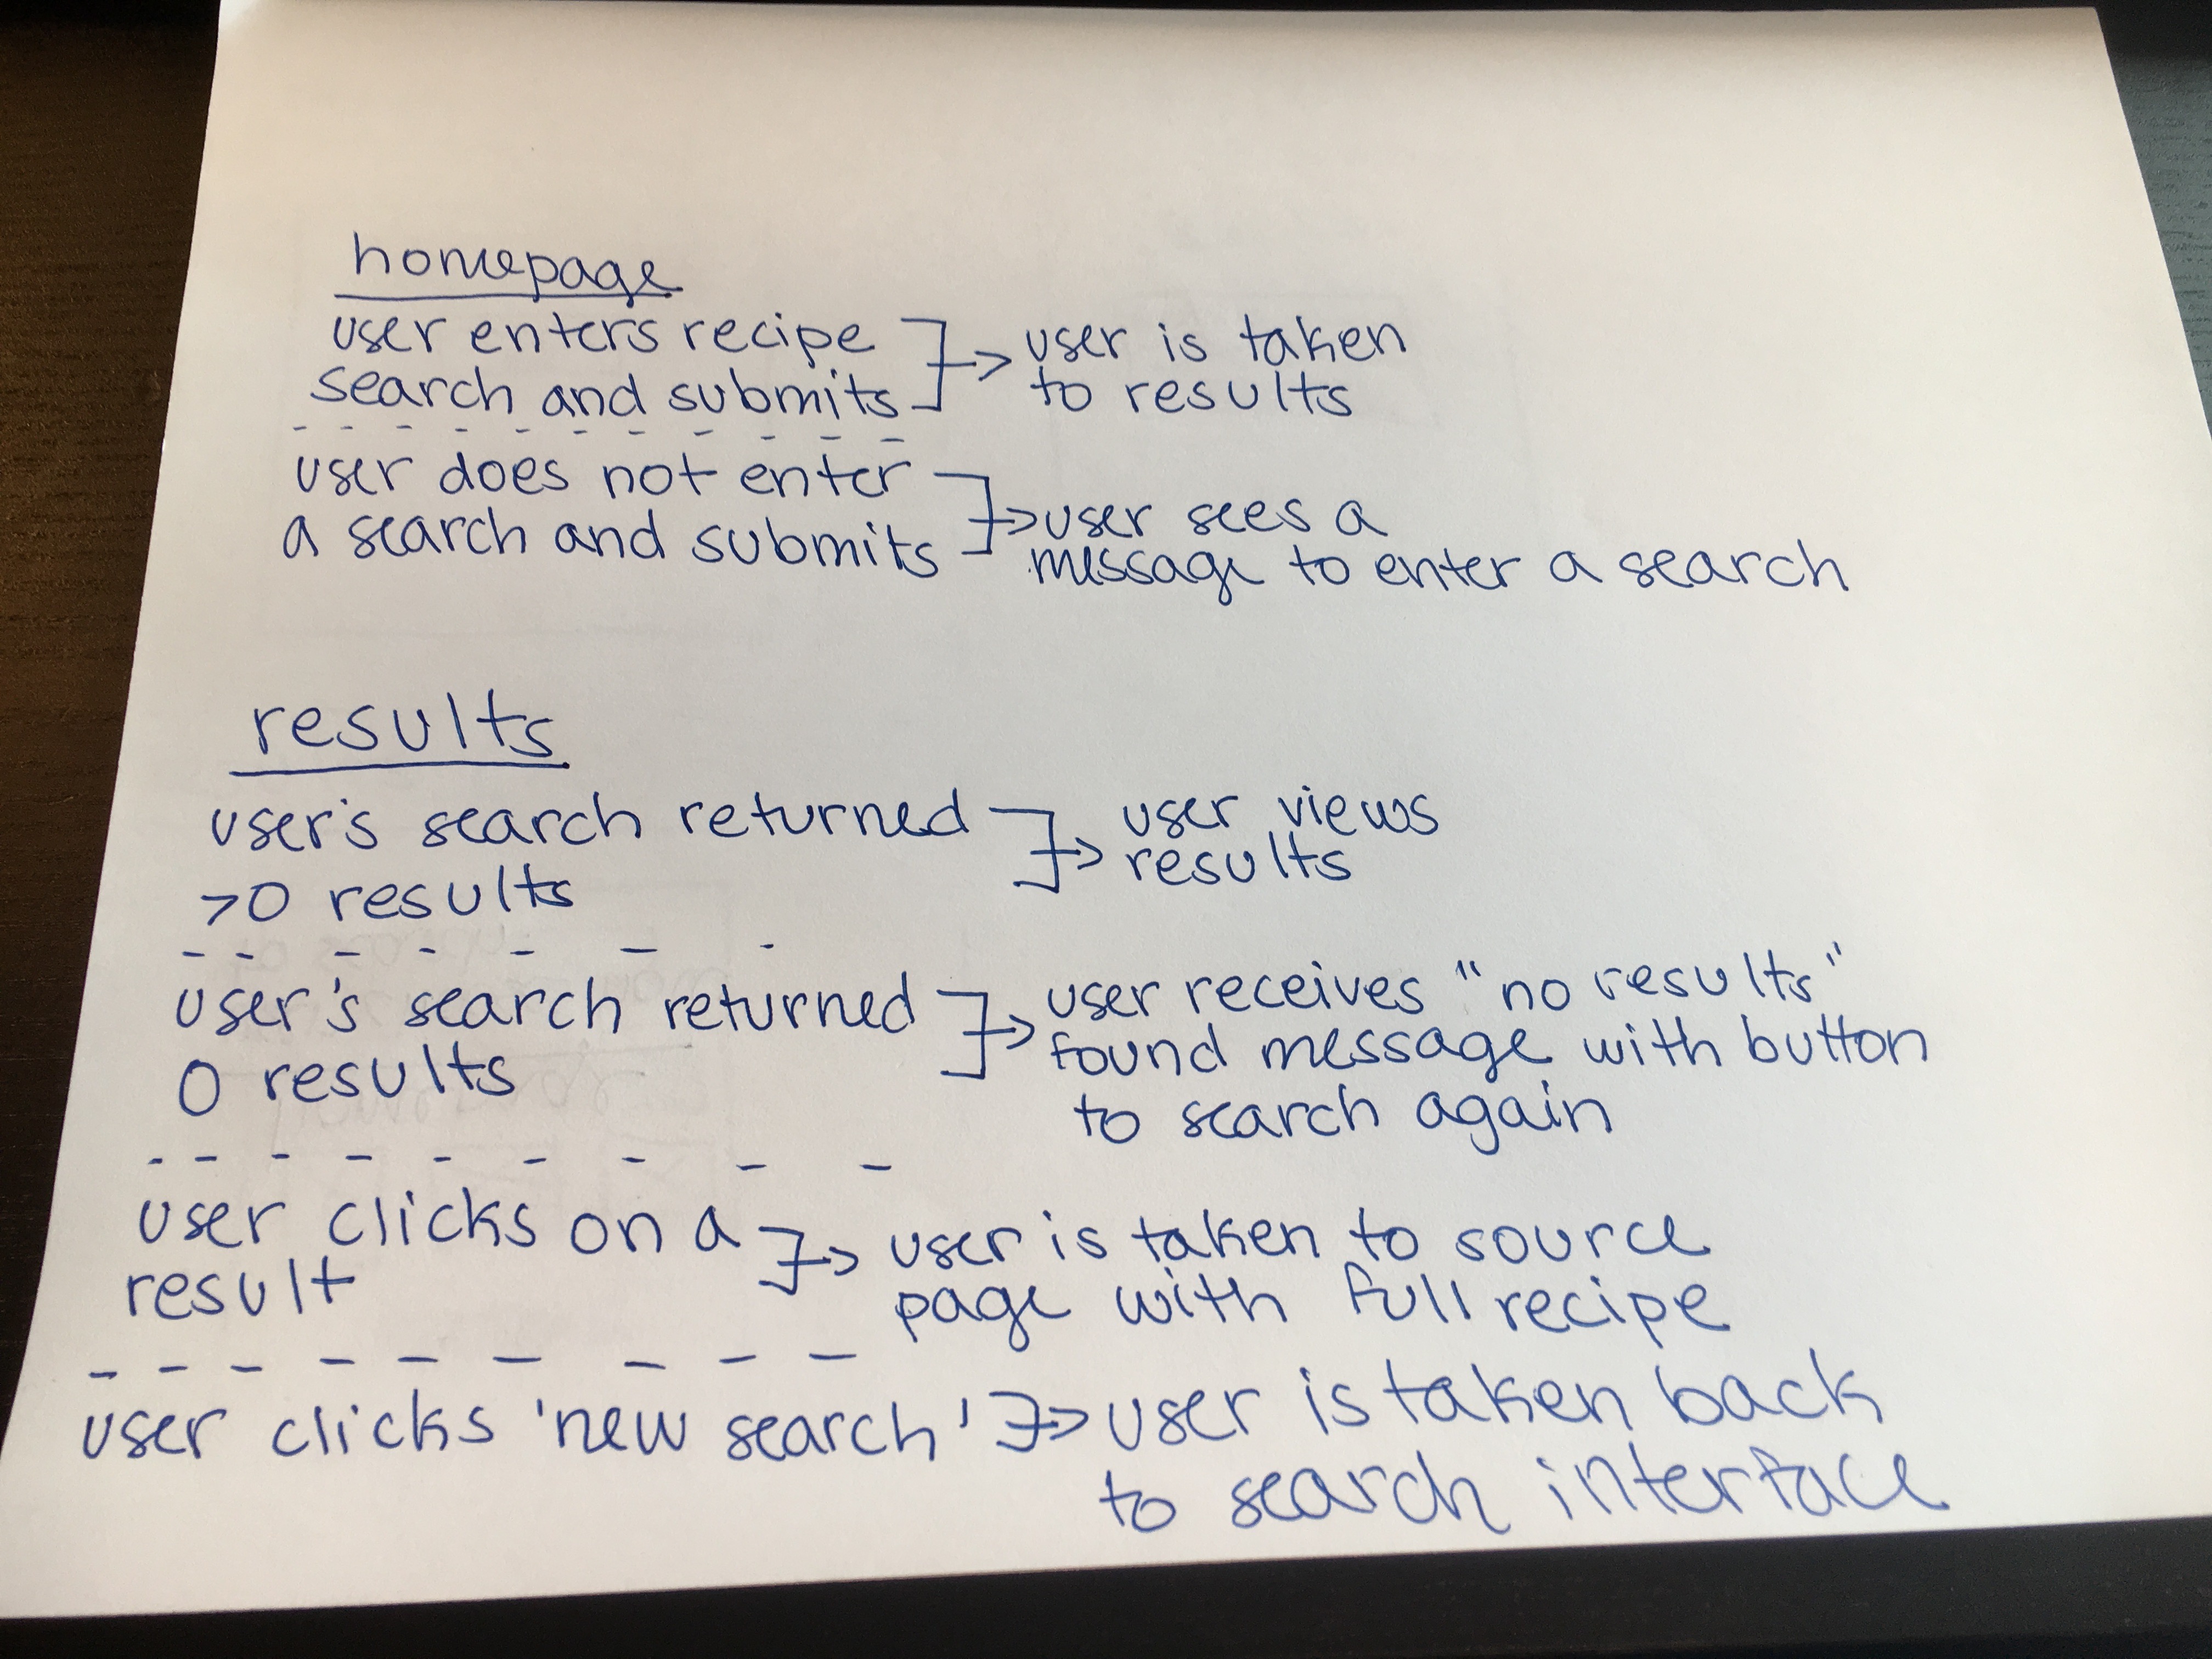 homepage
user enters recipe
search and submits
user is taken
to results
user does not enter
a search and submits
user sees a
message to enter a search
results
user's search returned
>0 results
user views
results
user's search returned
0 results
user receives "no results"
found message with button
to search again
user clicks on a
result
user is taken to source
page with full recipe
user clicks 'new search'
user is taken back
to search interface